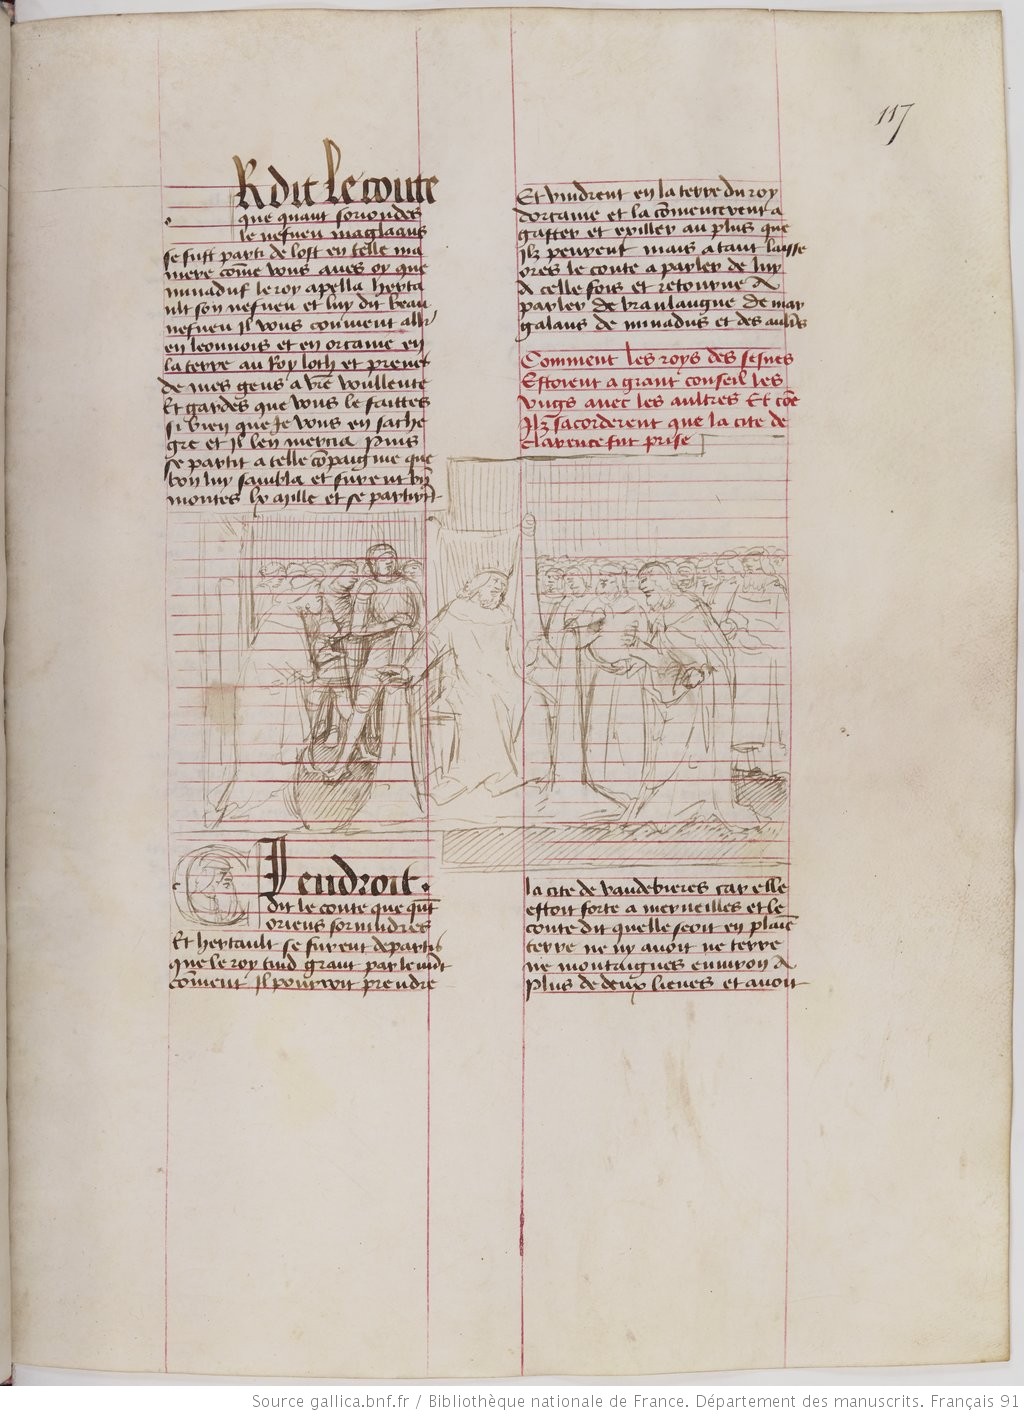 117
R dit le conte
que quant soriondes
le nefueu maglaans
se fust parti de lost en telle ma
niere cõme vous aues oy que
minaduf le roy apella herta
ult son nefueu et luy dit beau
nefueu Il vous conuient aller
en leonnois et en orcaine en
la terre au Roy loth et prenes
de mes gens a vr̃e voullente
Et gardes que vous le faittes
si bien que Je vous en sache
gre et Il len mercia Puis
se partit a telle cõpaignie que
bon luy sambla et furent bñ
montes lx mille et se partirẽt
Et vindrent en la terre du roy
dorcaine et la cõmencerent a
gaster et exiller au plus que
Ilz peurent mais a tant laisse
ores le conte a parler de luy
A celle fois et retourne A
parler de branlangue de mar
galans de minadus et des aultr̃s
Comment les roys des sesnes
Estoient a grant conseil les
vngs auec les aultres Et cõe
Ilz sacorderent que la cite de
Clarence fut prise
C
I endroit
dit le conte que qũt
oriens sormidres
Et hertault se furent departis
que le roy tind grant parlemẽt
cõment Il pourroit prendre
la cite de vandebieres car elle
estoit forte a merueilles et le
conte dit quelle seoit en plaiẽ
terre ne ny auoit ne terre
ne montaignes enuiron A
plus de deux lieues et auoit
Source gallica.bnf.fr / Bibliothèque nationale de France. Département des manuscrits. Français 91